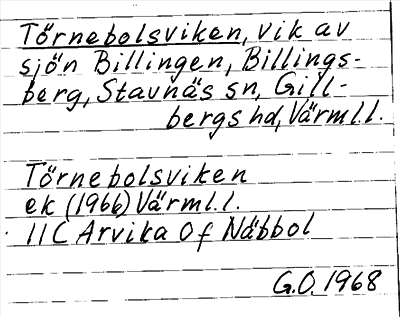 Törnebolsviken, vik av
sjön Billingen, Billings-
berg, Stavnäs sn, Gill-
bergs hd, Värml.l.
Törnebolsviken
ek (1966) Värml.l.
11C Arvika 0f Näbbol
G.O. 1968